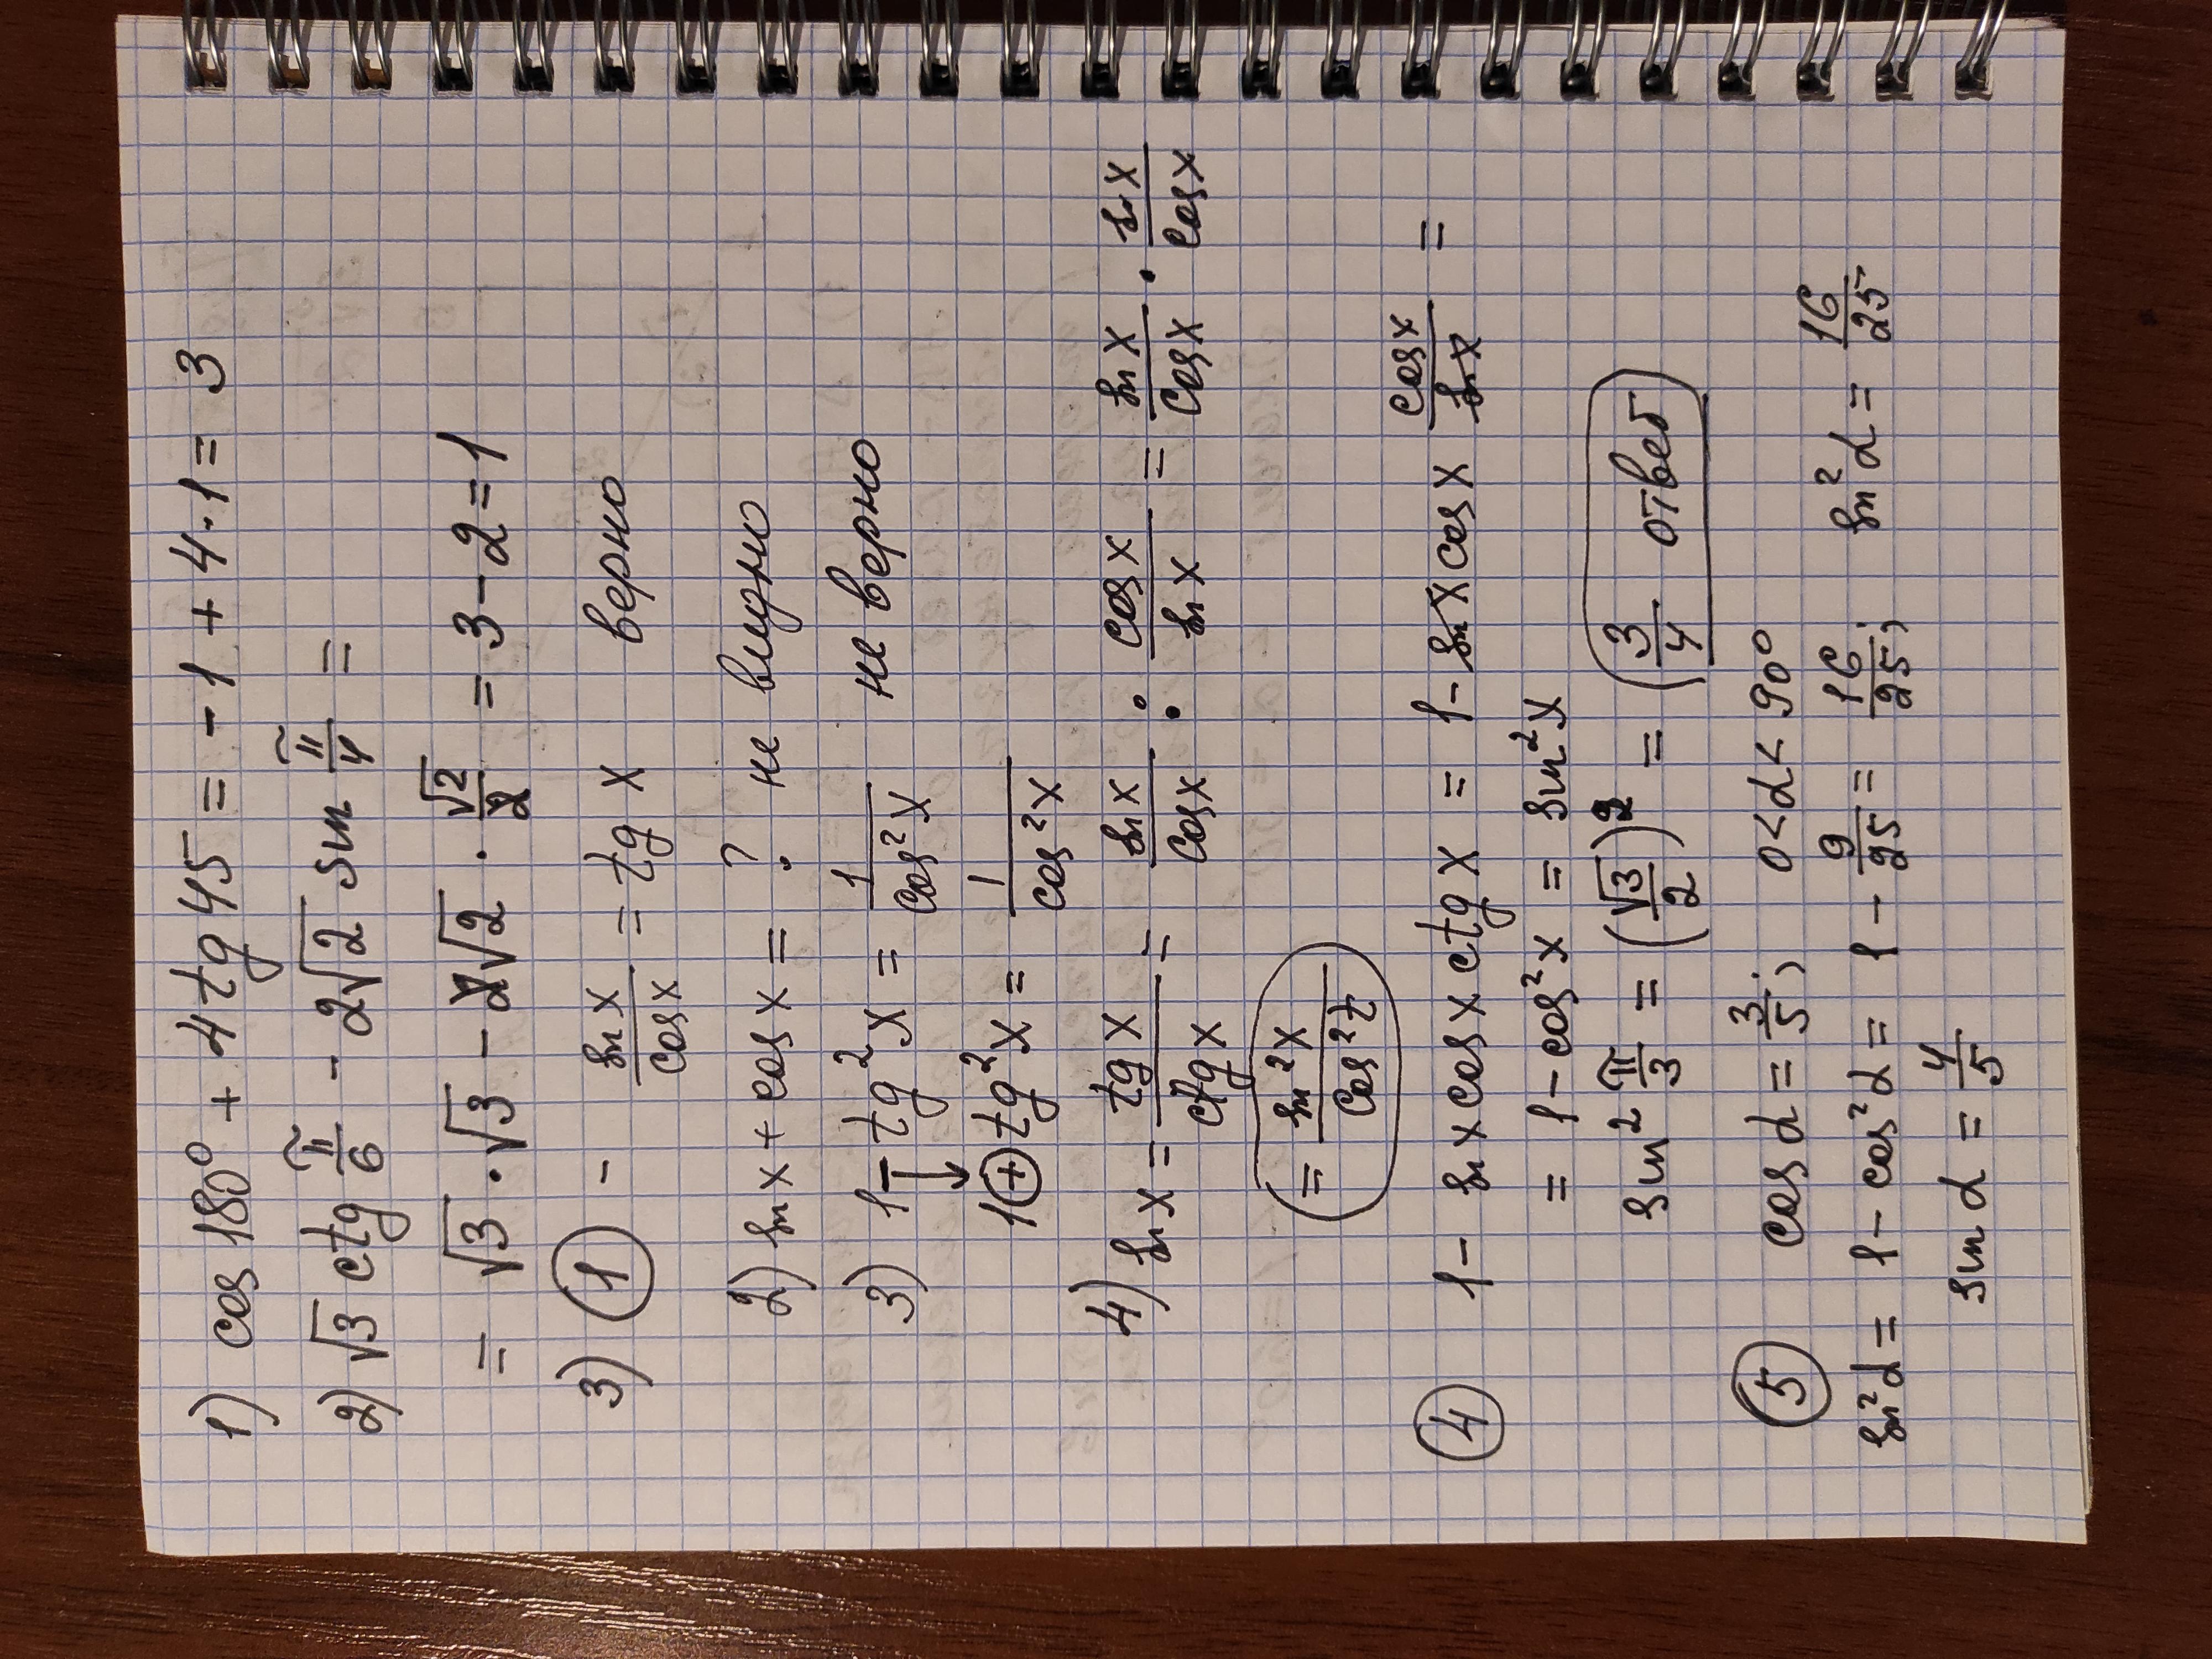 1) cos 180° + 4 tg 45 = -1 + 4·1 = 3
2) √3 ctg π/6 - 2√2 sin π/4 =
= √3·√3 - 2√2 · √2/2 = 3 - 2 = 1
3) ① - sin x/cos x = tg x верно
2) sin x + cos x = ? не видно
3) 1 - tg²x = 1/cos²x не верно
1 ⊕ tg²x = 1/cos²x
4) sin x = tg x/ctg x = sin x/cos x : cos x/sin x = sin x/cos x · sin x/cos x
= sin²x/cos²t
④ 1 - sin x cos x ctg x = 1 - sin x cos x cos x/sin x =
= 1 - cos²x = sin²x
sin² π/3 = (√3/2)² = (3/4 ответ
⑤ cos α = 3/5; 0<α<90°
sin²α = 1 - cos²α = 1 - 9/25 = 16/25; sin²α = 16/25
sin α = 4/5